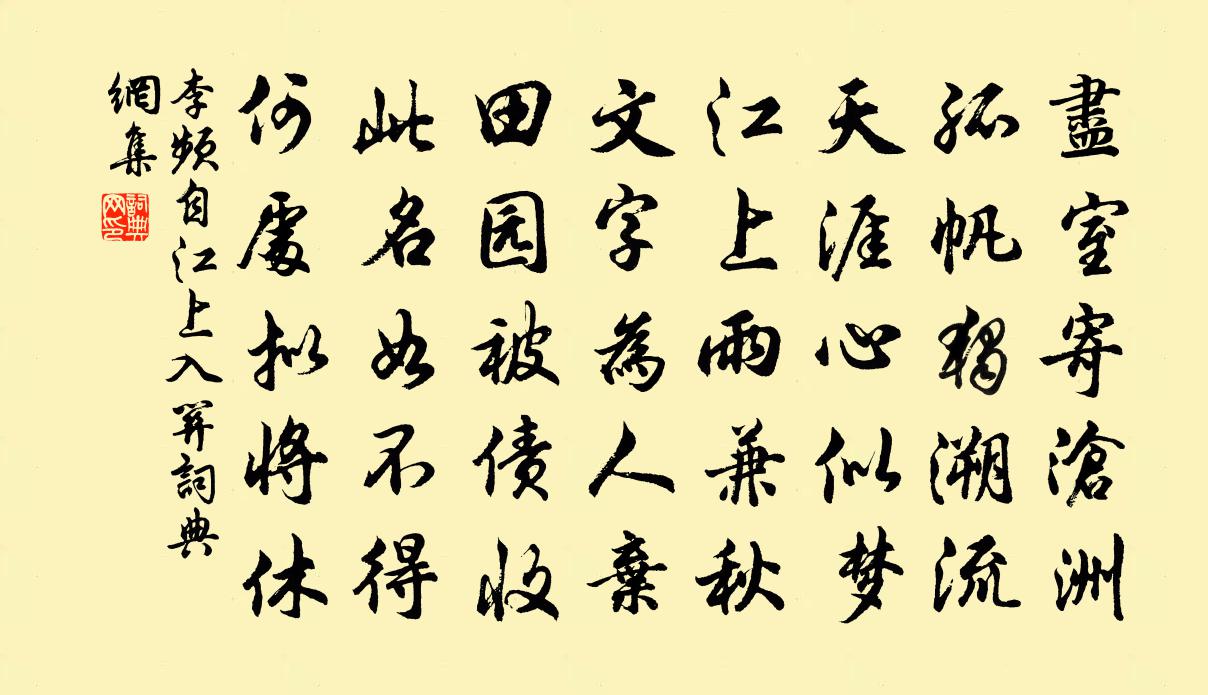 盡室寄滄洲
孤帆獨溯流
天涯心似梦
江上雨兼秋
文字為人棄
田园被债收
此名如不得
何處拟將休
李频自江上入關詞典
網集
詞典网印